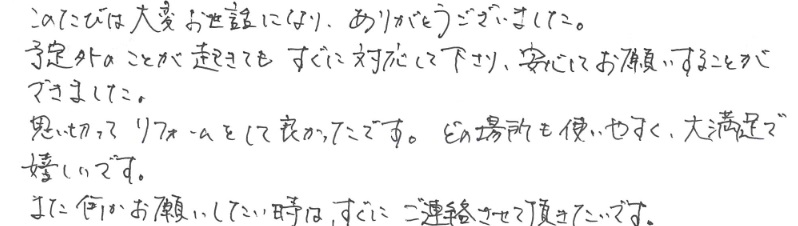 このたびは大変お世話になり、ありがとうございました。
予定外のことが起きても すぐに対応して下さり、安心してお願いすることが
できました。
思い切って リフォームをして良かったです。どの場所も使いやすく、大満足で
嬉しいです。
また何かお願いしたい時は、すぐに ご連絡させて頂きたいです。